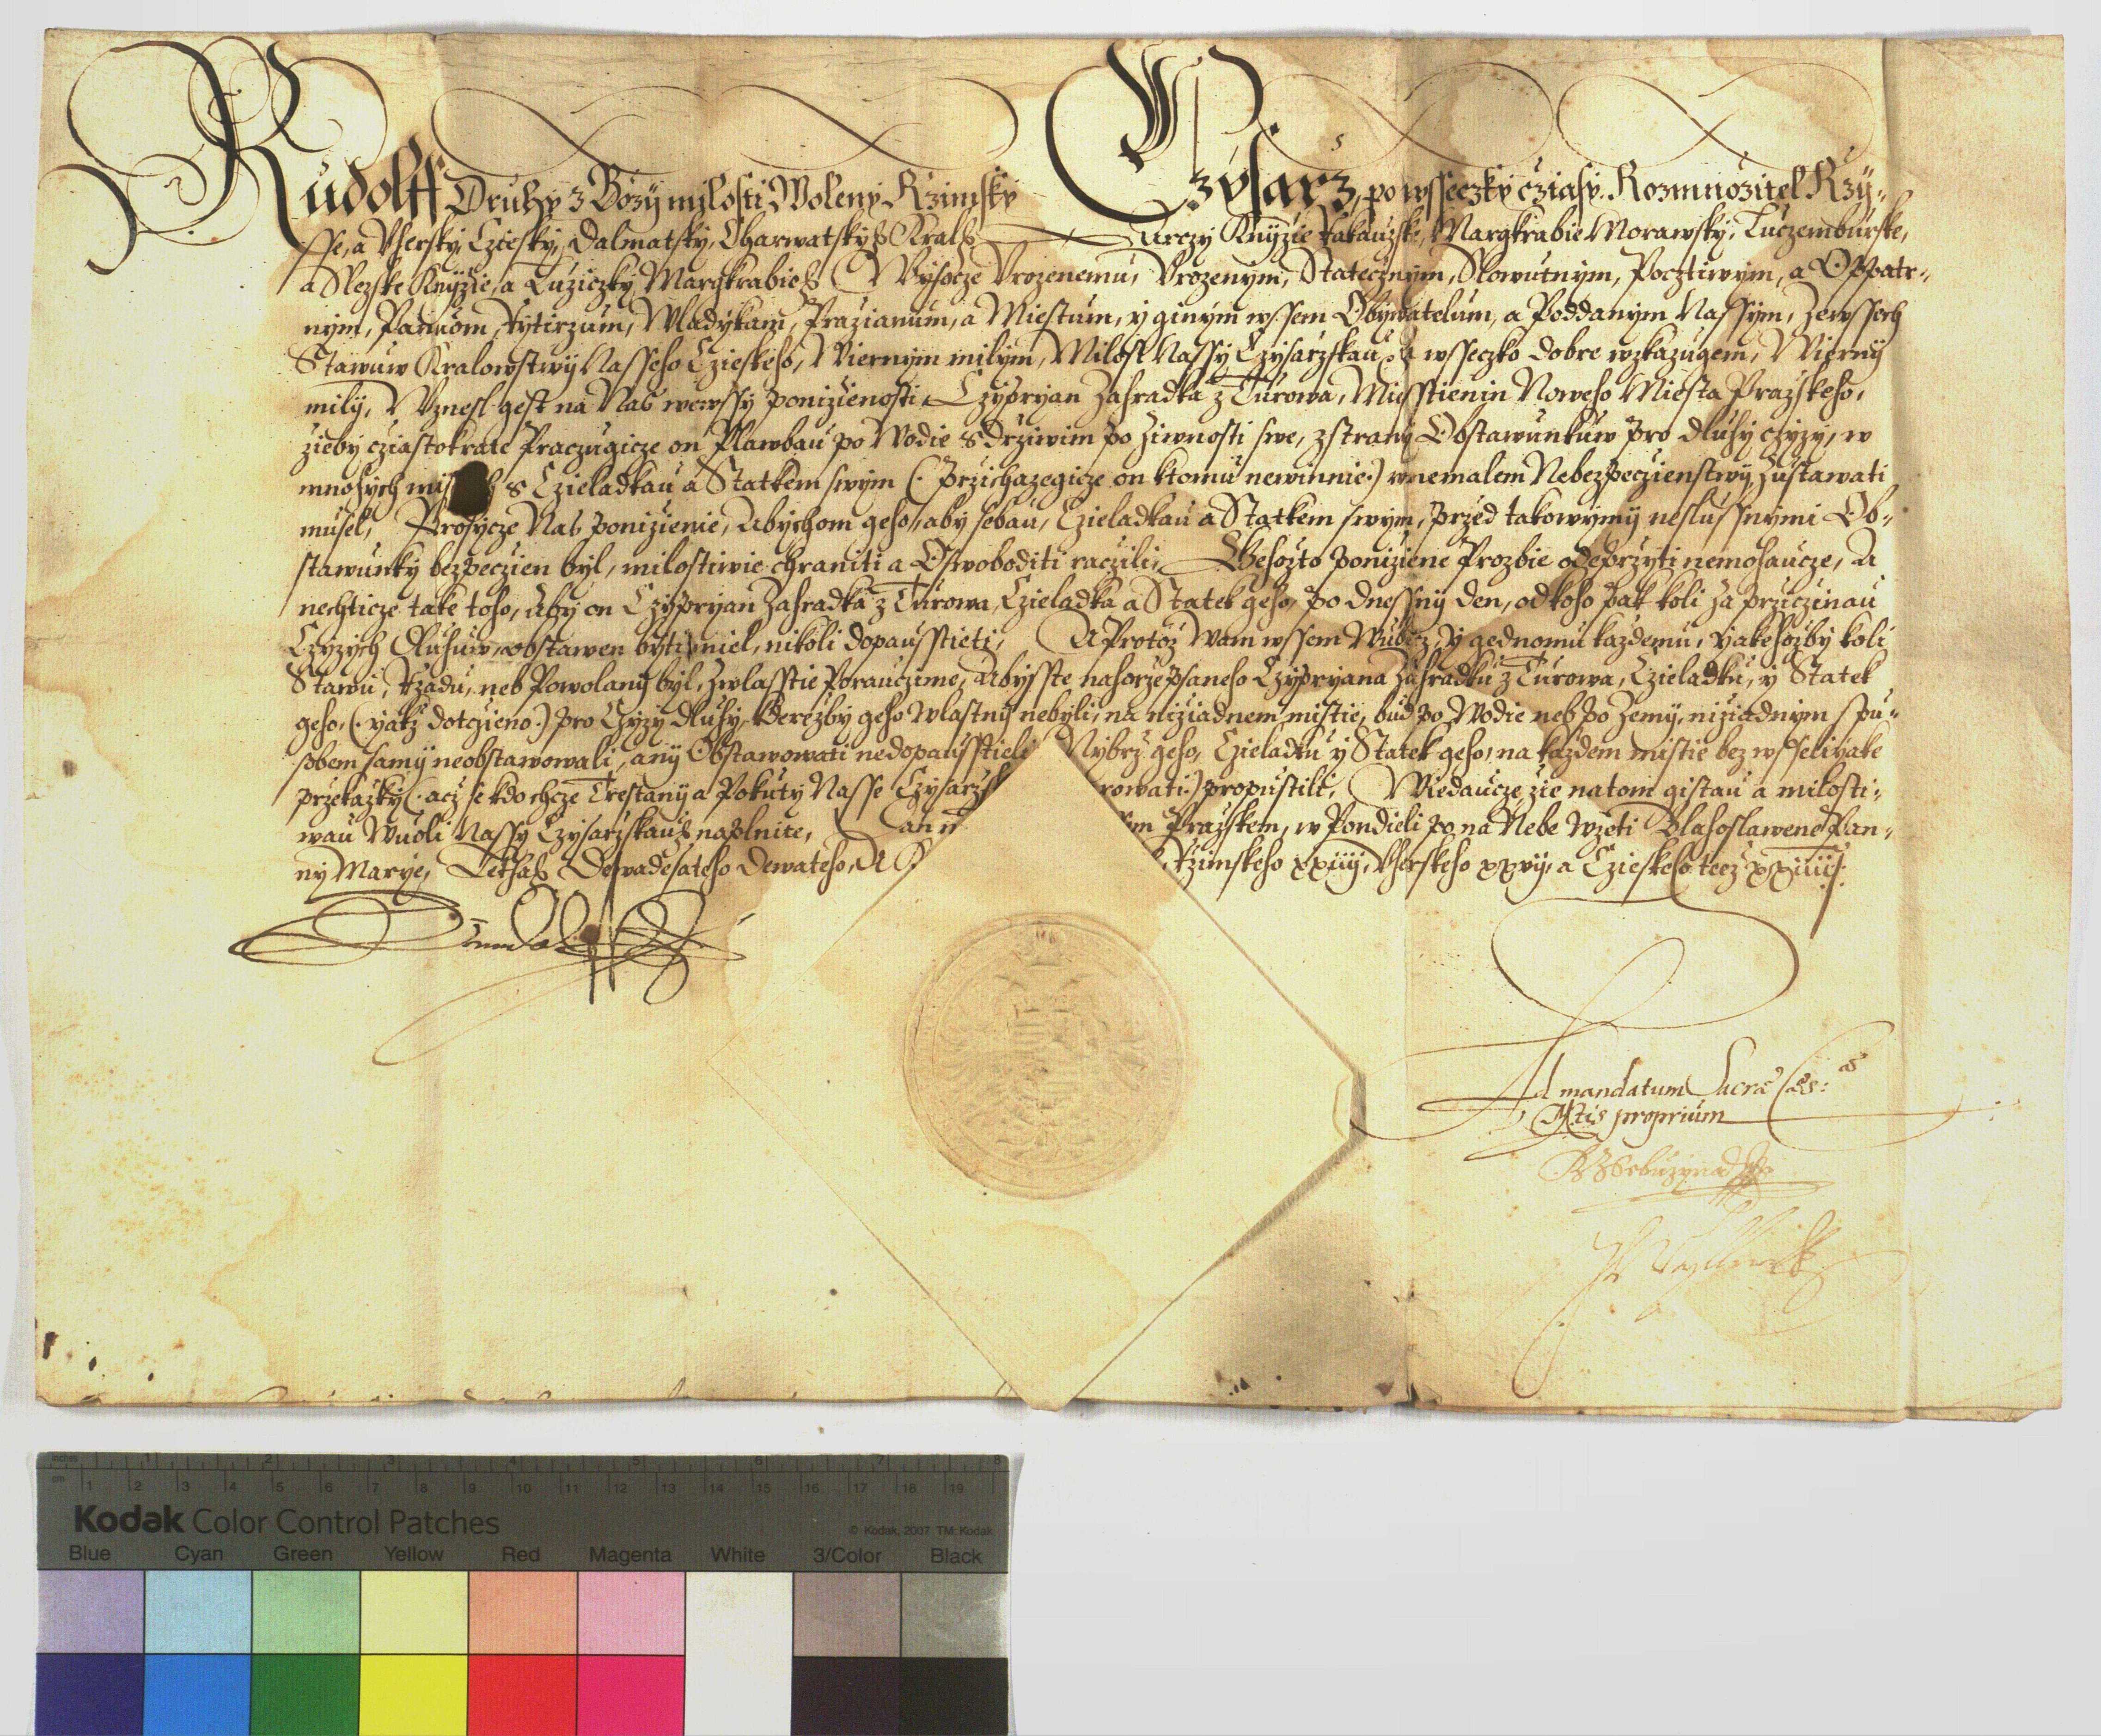 Rudolff Druhy z Bozy milosti Woleny Rzimsky Czysarz, po wsseczky cziasy Rozmnozitel Rzy-
sse, a Vhersky, Cziesky, Dalmatsky, Charwatsky &c Kral &c Arczy Knyzie Rakauzske, Margkrabie Morawsky, Luczemburske,
a Slezske Knyzie, a Luziczky Margkrabie &c Wysocze Vrozenemu, Vrozenym, Statecznym, Slowutnym, Pocztiwym, a Oppatr-
nym, Pannom, Rytirzum, Wladykam, Prazianum, a Miestum, y ginym wssem Obywatelum, a Poddanym Nassym, zewssech
Stawuw Kralowstwy Nasseho Czieskeho, Wiernym milym, Milost Nassy Czysarzskau a wsseczko dobre wzkazugem, Wierny
mily, Wznesl gest na Nas wewssy ponizienosti Czypryan Zahradka z Turowa, Miesstienin Noweho Miesta Prazskeho,
zieby cziastokrate Praczugicze on Plawbau po Wodie s Drziwim po ziwnosti swe, zstrany Obstawunkuw pro dluhy czyzy, w
mnohych mis h s Czieladkau a Statkem swym (: Przichazegicze on ktomu newinnie :) wnemalem Nebezpeczienstwy zustawati
musel, Prosycze Nas ponizienie, Abychom geho, aby sebau, Czieladkau a Statkem swym, przed takowymy neslussnymi Ob-
stawunky bezpeczien byl, milostiwie chraniti a Oswoboditi raczili, Gehozto poniziene Prozbie odeprzyti nemohaucze, A
nechticze take toho, aby on Czypryan Zahradka z Turowa, Czieladka a Statek geho, po dnessny den, od koho pak koli za przuczinau
Czyzych Dluhuw, obstawen byti miel, nikoli dopausstieti, A Protoz Wam wssem Wubecz y gednomu kazdemu, yakehozby koli
Stawu, Rzadu, neb Powolany byl, zwlasstie Porauczime, Abysste nahorzepsaneho Czypryana Zahradku z Turowa, Czieladku, y Statek
geho, (: yakz dotczieno :) pro Czyzy dluhy, kterezby geho wlastny nebyli, na niziadnem mistie, bud po Wodie neb po Zemy, niziadnym spu-
sobem samy neobstawowali, any Obstawowati nedopausstieli Nybrz geho, Czieladku y Statek geho, na kazdem mistie bez wsseliyake
przekazky (: acz se kdo chcze Trestany a Pokuty Nasse Czysarzs rowati :) propustili, Wiedaucze, zie natom gistau a milosti-
wau Wuoli Nassy Czysarzskau &c naplnite, an n Prazskem, w Pondieli po na Nebe Wzeti Blahoslawene Pan-
ny Marye, Letha &c Dewadesateho Dewateho, A K Rzimskeho xxiiij, Vherskeho xxvij, a Czieskeho tecz xxiiij:
Rudolff
Ad mandatum Sacrae Caes:ae
Mtis proprium
Kodak Color Control Patches
© Kodak, 2007 TM: Kodak
inches 1 2 3 4 5 6 7 8
cm 1 2 3 4 5 6 7 8 9 10 11 12 13 14 15 16 17 18 19
Blue Cyan Green Yellow Red Magenta White 3/Color Black